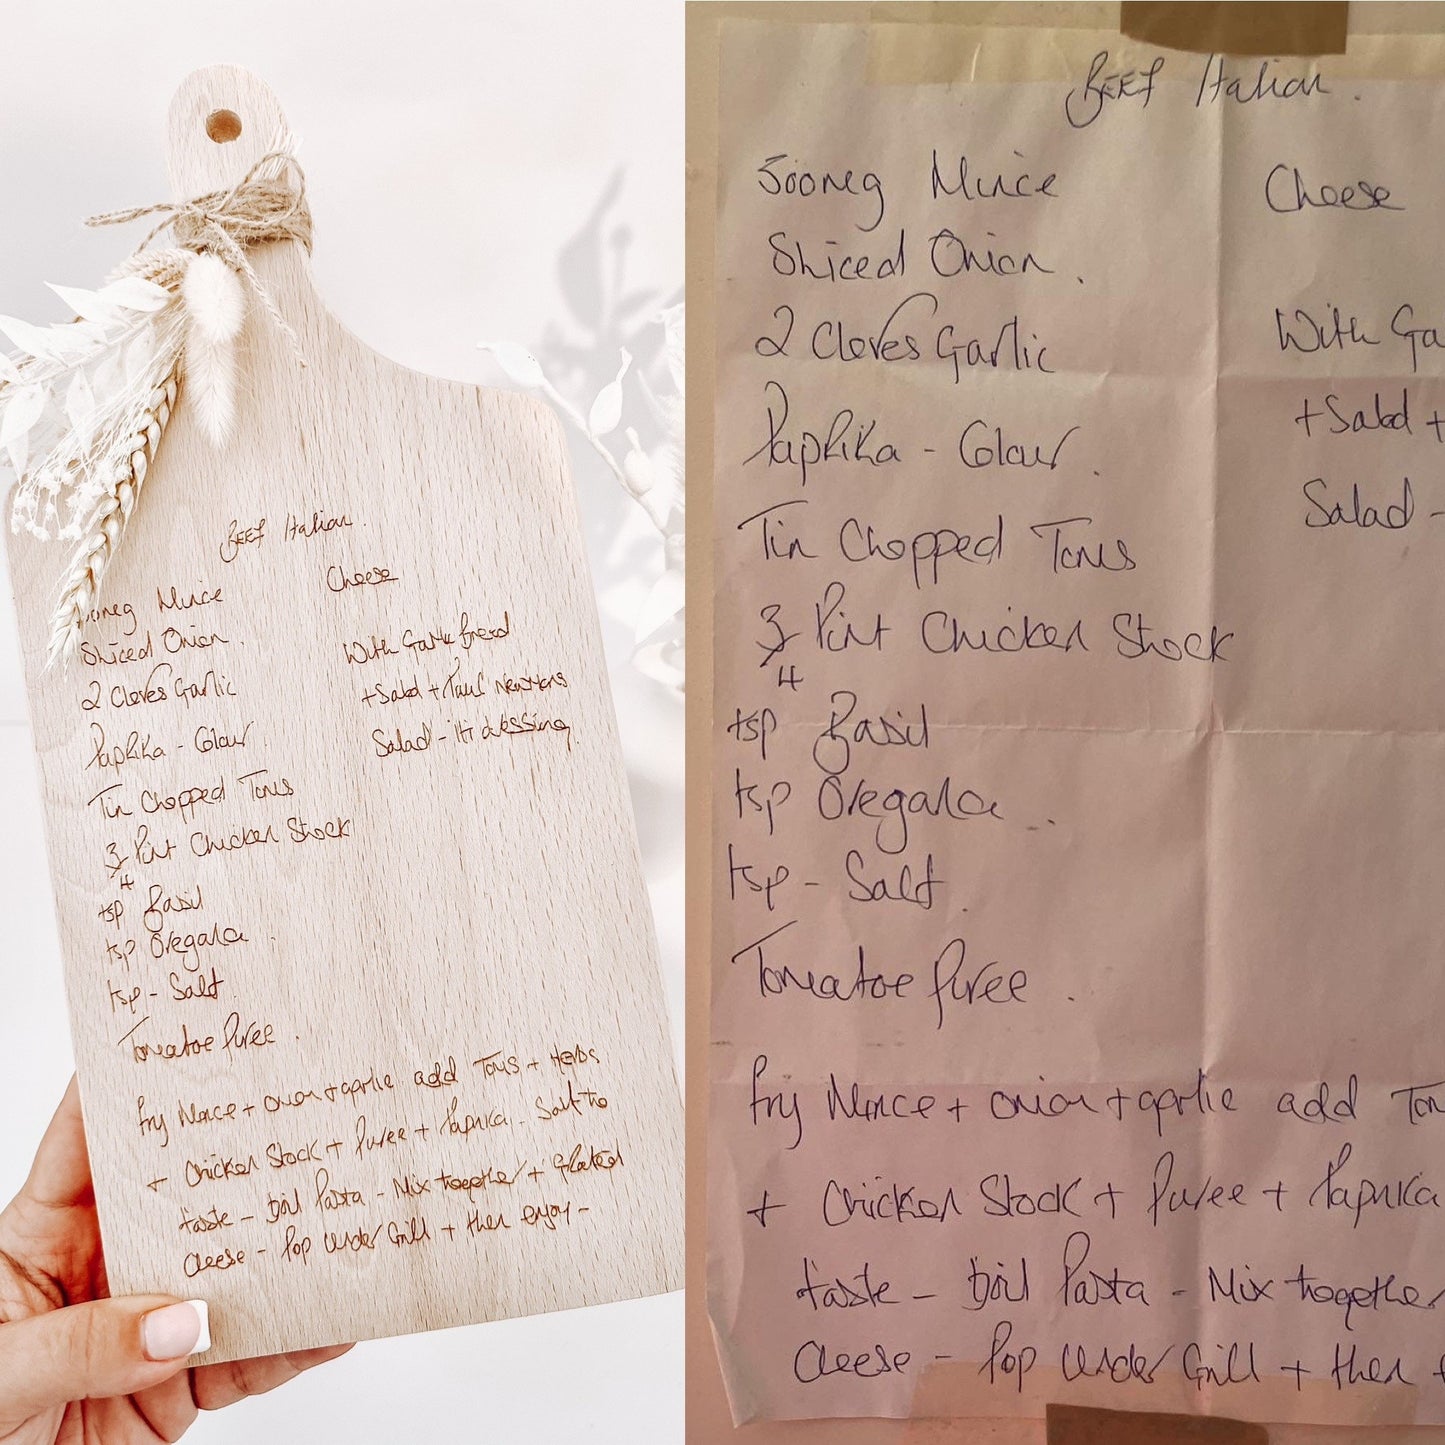 BEEF Italian.
Mince
Cheese
Sliced Onion.
With Garlic Bread
2 Cloves Garlic
+ Salad + Paul Newmans
Paprika - Colour.
Salad - It. dressing.
Tin Chopped Toms
3/4 Pint Chicken Stock
tsp Basil
tsp Oregano.
tsp - Salt.
Tomatoe Puree.
Fry Mince + onion + garlic add Toms + Herbs
+ Chicken Stock + Puree + Paprika. Salt to
taste - Boil Pasta - Mix together + Grated
Cheese - Pop Under Grill + then enjoy -
BEEF Italian.
500mg Mince
Cheese
Sliced Onion.
2 Cloves Garlic
With Ga
Paprika - Colour.
+ Salad +
Tin Chopped Toms
Salad -
3/4 Pint Chicken Stock
tsp Basil
tsp Oregano.
tsp - Salt.
Tomatoe Puree.
Fry Mince + onion + garlic add Tom
+ Chicken Stock + Puree + Paprika
taste - Boil Pasta - Mix together
Cheese - Pop Under Grill + then